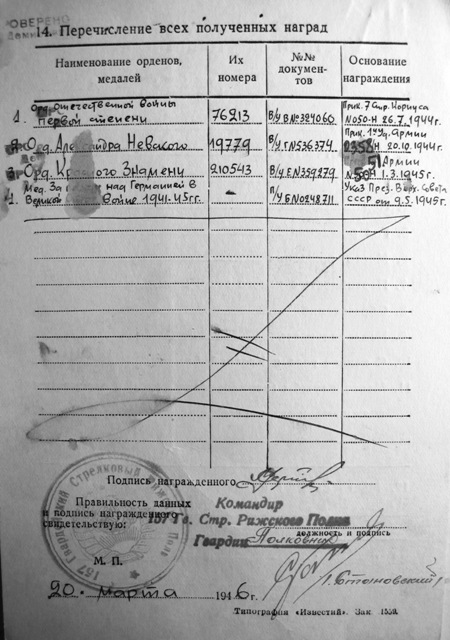 ОВЕРЕНО
14. Перечисление всех полученных наград
Наименование орденов, медалей
Их номера
№№ документов
Основание награждения
1. Орд. Отечественной Войны Первой степени
76213
В/у В №384060
Прик. 7 Стр. Корпуса №050-Н 26.7.1944г.
Орд. Александра Невского
19779
В/у Е№536374
Прик. 1ой Уд. Армии
Н 20.10.1944г.
3. Орд. Красного Знамени
210543
В/у Е№359279
Армии
Н 1.3.1945г.
Мед. За над Германией в Великой Войне 1941-45гг.
П/у Б№0248711
Указ През. Верх. Совета СССР от 9.5.1945г.
Подпись награжденного
Правильность данных
и подпись награжденного
свидетельствую:
Командир
157 Гв. Стр. Рижского Полка
Гвардии Полковник
должность и подпись
М. П.
157 Гвардейский Стрелковый Полк
20. марта 1946г.
Типография «Известий». Зак. 1559.